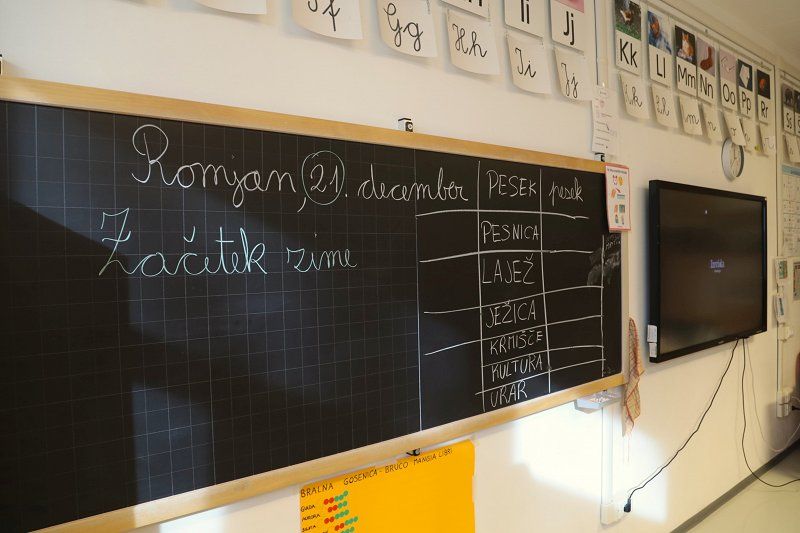 Ff
Gg
Hh
Ii
Ii
Jj
Jj
Kk
Ll
Mm
Nn
Oo
Pp
Rr
Romjan, 21. december
Začetek zime
PESEK pesek
PESNICA
LAJEŽ
JEŽICA
KRMIŠČE
KULTURA
URAR
BRALNA GOSENICA - BRUCO MANGIA LIBRI
GIADA
AURORA